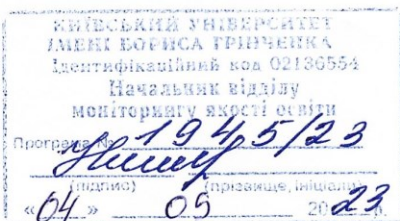 КИЇВСЬКИЙ УНІВЕРСИТЕТ
ІМЕНІ БОРИСА ГРІНЧЕНКА
Ідентифікаційний код 02136554
Начальник відділу
моніторингу якості освіти
Програма № 1945/23
(підпис) (прізвище, ініціали)
«04» 09 2023 р.